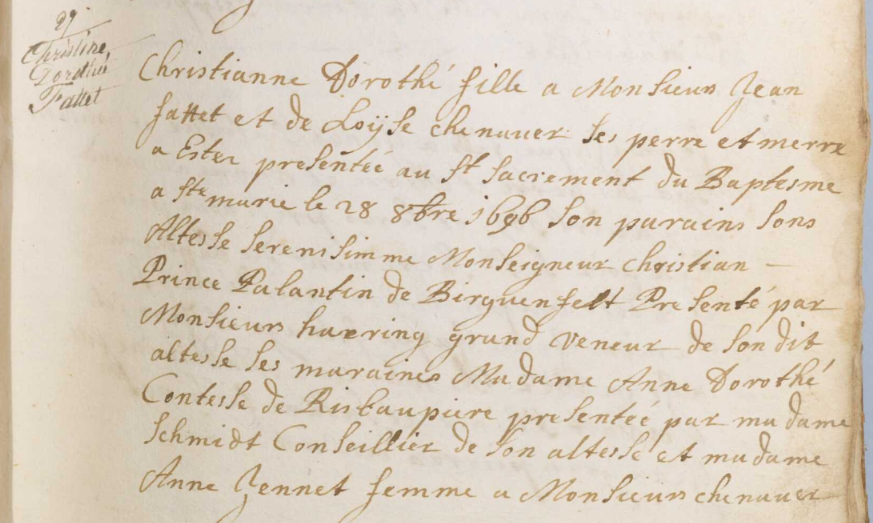 29
Christine
Dorothé
Fattet
Christianne Dorothé fille a Monsieur Jean
fattet et de Loÿse chenauer ses perre et merre
a Ester presentée au St Sacrement du Baptesme
a Ste marie le 28 8bre 1696 son parains sons
Altesse serenisimme Monseigneur christian –
Prince Palantin de Birquenfelt Presenté par
Monsieurs harring grand veneur de son dit
altesse ses maraines Madame Anne Dorothé
Contesse de Risbaupiere presentée par madame
schmidt Conseillier de son altesse et madame
Anne Jennet femme a Monsieurs chenauer